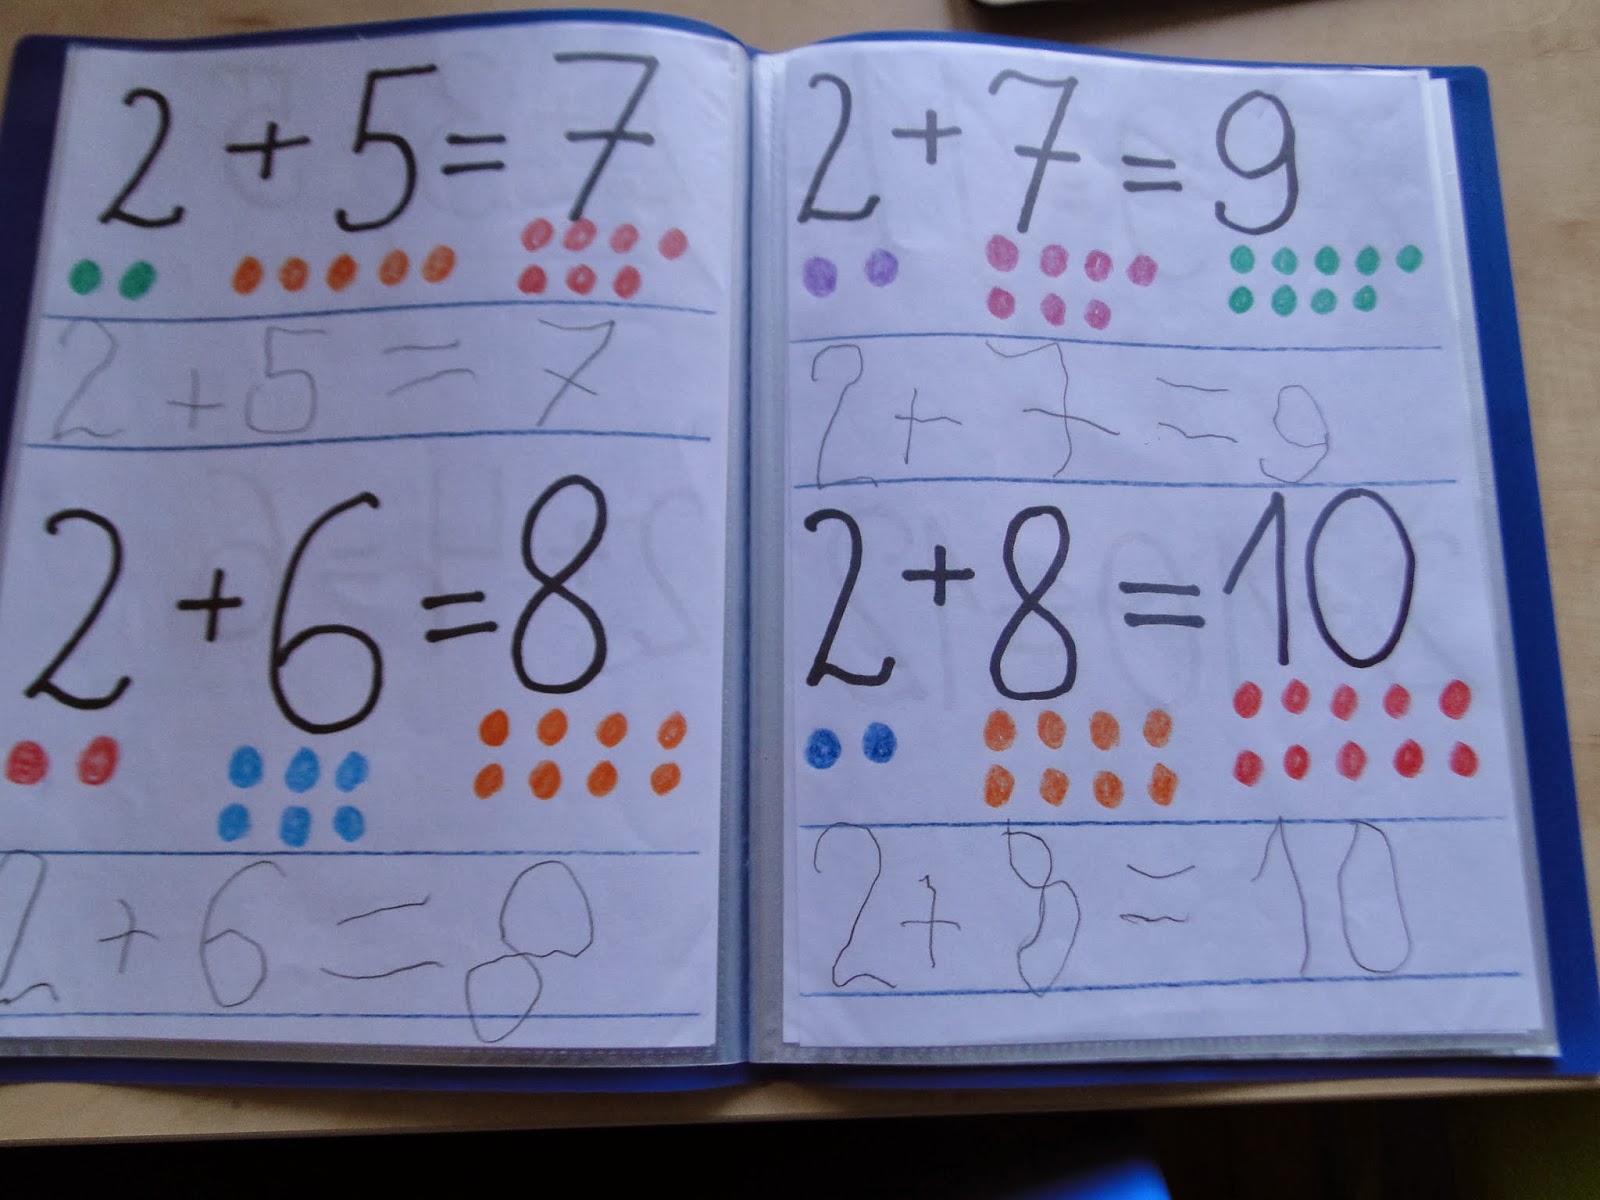 2 + 5 = 7
2 + 5 = 7
2 + 6 = 8
2 + 6 = 8
2 + 7 = 9
2 + 7 = 9
2 + 8 = 10
2 + 8 = 10